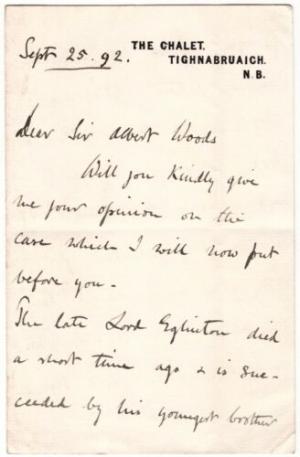 Sept 25. 92.
THE CHALET.
TIGHNABRUAICH.
N.B.
Dear Sir Albert Woods
Will you kindly give
me your opinion on the
case which I will now put
before you -
The late Lord Eglinton died
a short time ago & is suc-
ceeded by his youngest brother